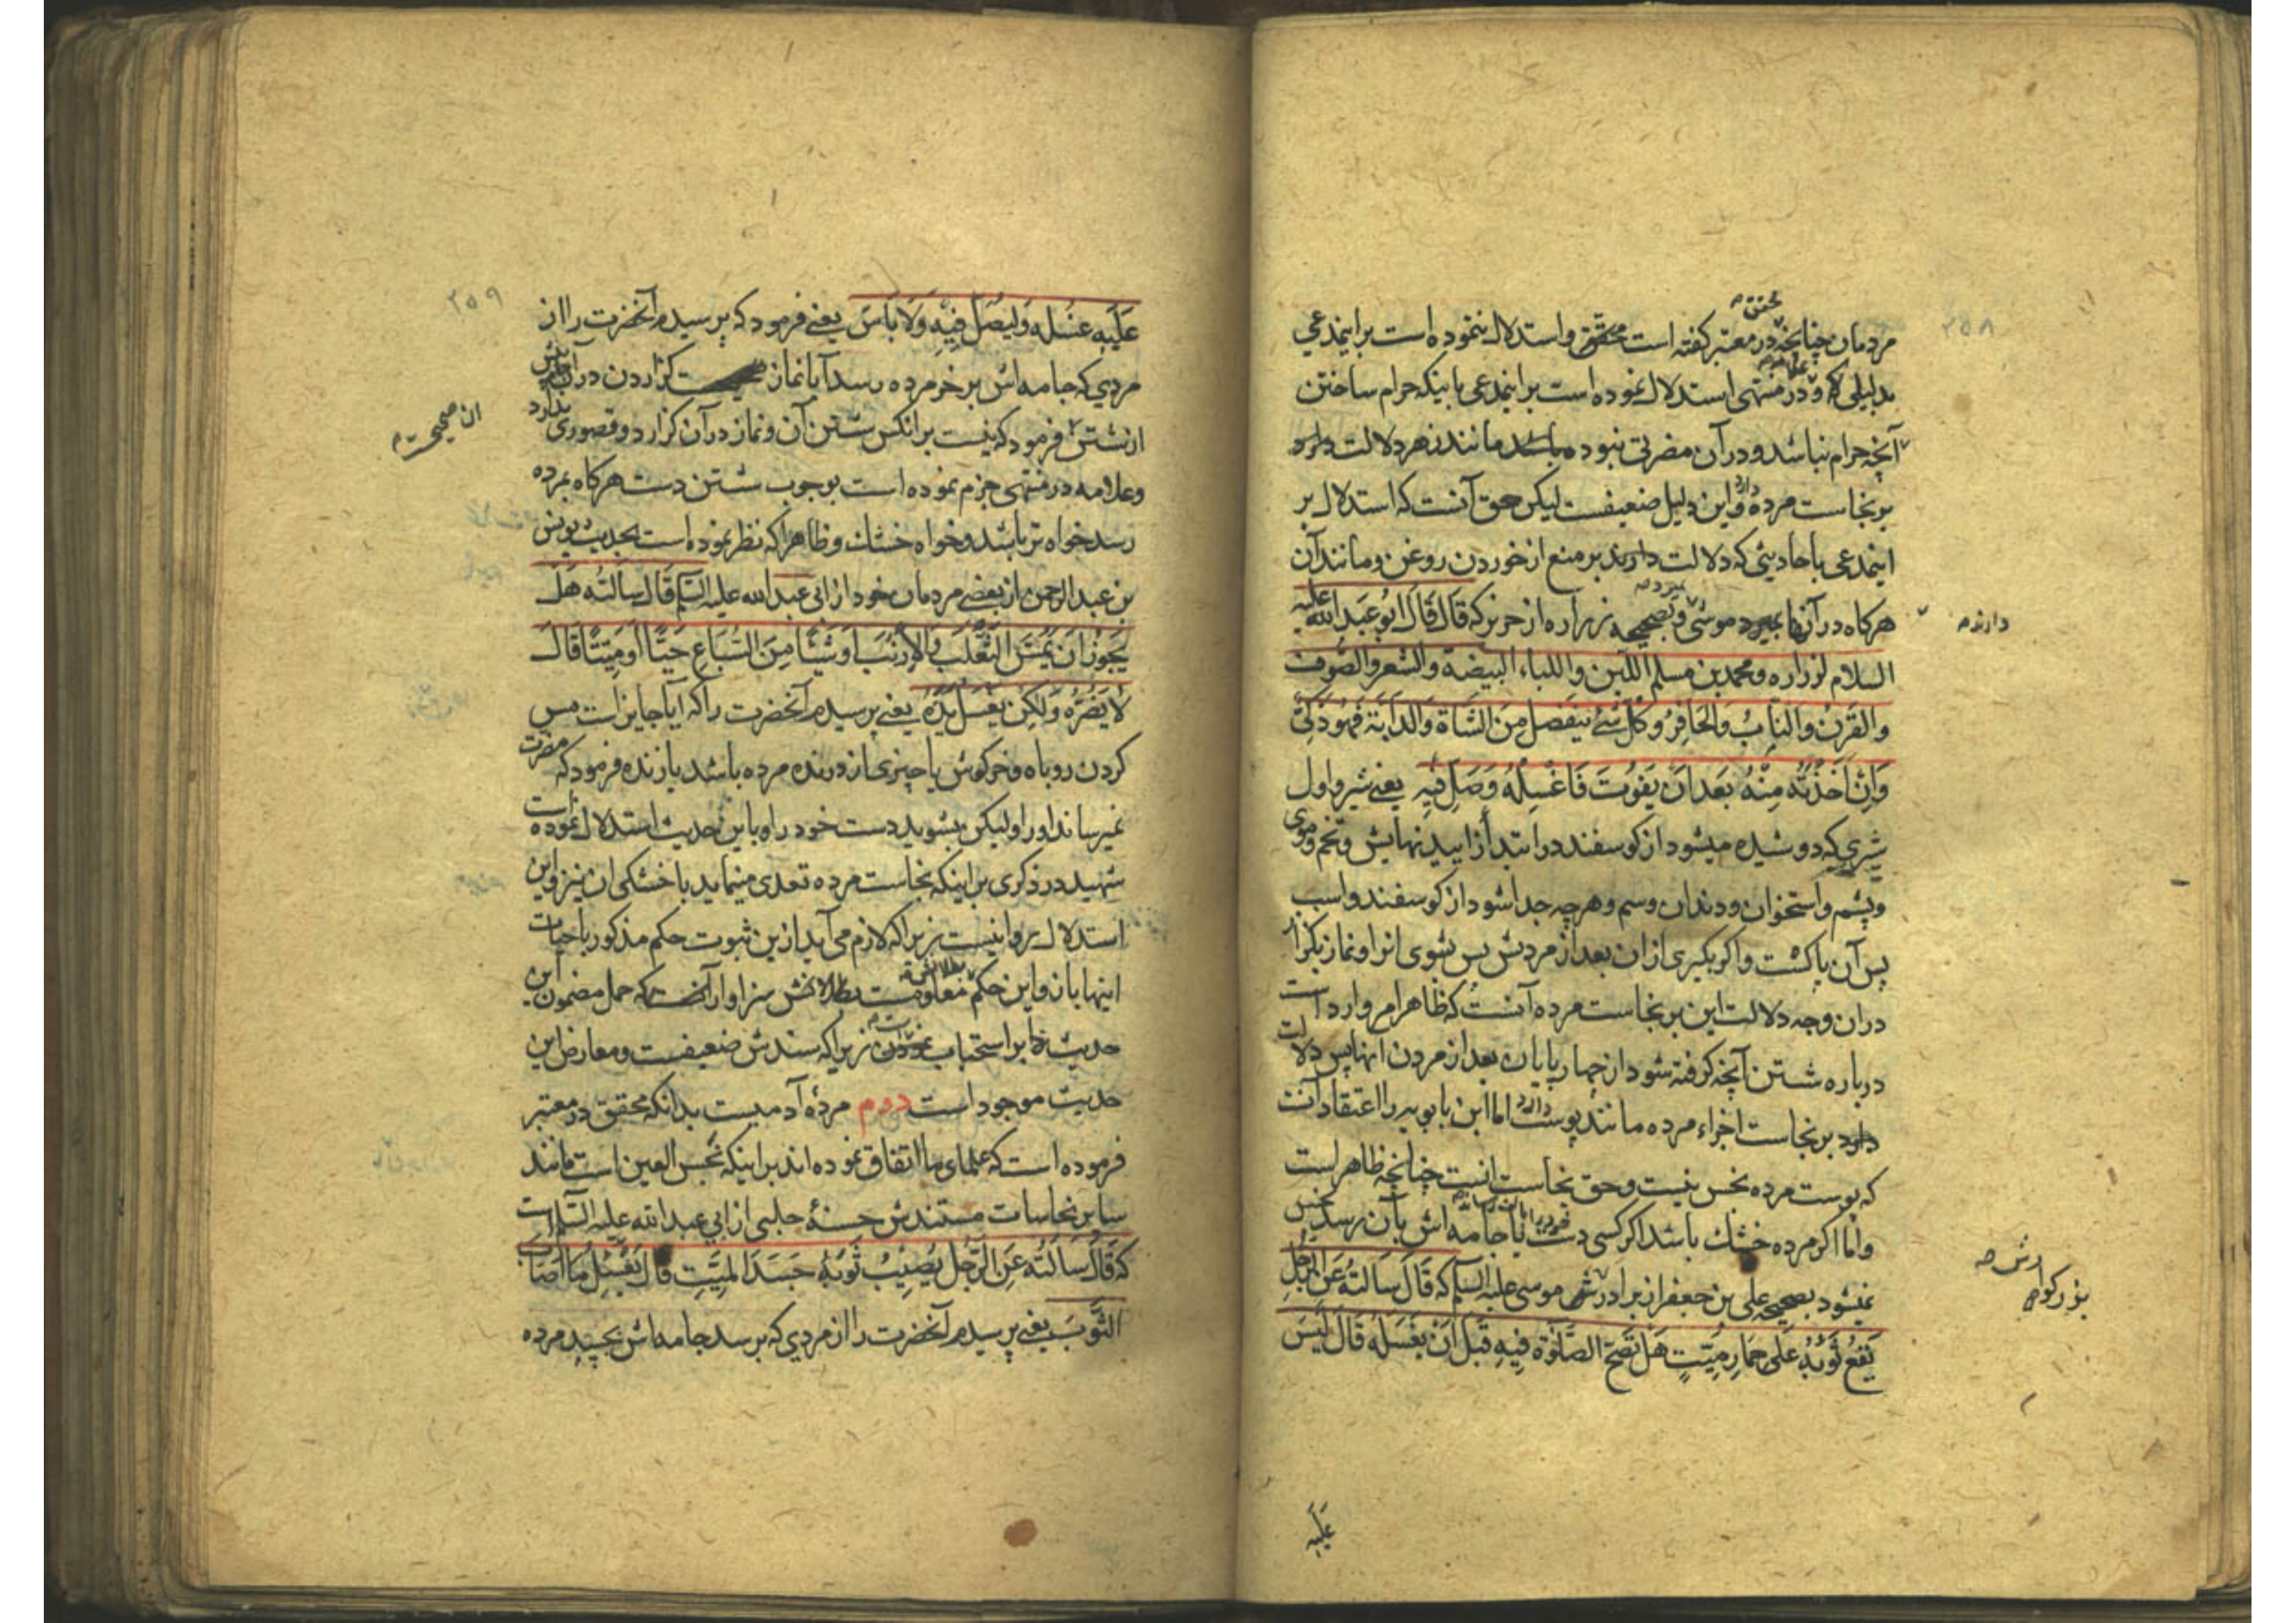 ۲۵۸
محقق
مردمان چنانچه در معتبر گفته است محقق و استدلال ننموده است براینمدعی
علامه
بدلیلی که و در منتهی استدلال نموده است براینمدعی باینکه حرام ساختن
آنچه حرام نباشد و در آن مضرتی نبوده باشد مانند زهر دلالت دارد
بر نجاست مرده و این دلیل ضعیفست لیکن حق آنست که استدلال بر
اینمدعی باحادیثی که دلالت دارند بر منع از خوردن روغن و مانند آن
دارند
هرکاه در آنها بمیرد موشی و بصحیحه زراره از حریز که قال قال ابو عبدالله علیه
السلام لزراره و محمد بن مسلم اللبن واللباء البیضة والشعر والصوف
والقرن والناب والحافر وکل شئ ینفصل من الشاة والدابة فهو ذکی
وان اخذته منه بعد ان یموت فاغسله وصل فیه یعنی شیر و اول
شیری که دوشیده میشود از کوسفند در ابتدا زاییدنهایش و تخم و موی
و پشم و استخوان و دندان و سم و هرچه جدا شود از کوسفند و اسب
پس آن پاکست و اکر بکیری از ان بعد از مردنش پس بشوی انرا و نماز بکزار
دران وجه دلالت این بر نجاست مرده آنست که ظاهرا امر وارد است
درباره شستن آنچه کرفته شود از چهارپایان بعد از مردن انها پس دلالت
دارد بر نجاست اجزاء مرده مانند پوست اما ابن بابویه را اعتقاد آنست
که پوست مرده نجس نیست و حق نجاست انست چنانچه ظاهر است
و اما اکر مرده خشک باشد اکر کسی دست یا جامه اش بآن رسد نجس
نمیشود بصحیحه علی بن جعفر از برادرش موسی علیه السلام که قال سالته عن الرجل
یقع ثوبه علی حمار میت هل تصح الصلوة فیه قبل ان یغسله قال لیس
علیه
۲۵۹
علیه غسله ولیصل فیه ولا باس یعنی فرمود که پرسیدم آنحضرت را از
مردی که جامه اش بر خر مرده رسد آیا نماز کزاردن در آن پیش
ان صحیحست
از شستن فرمود که نیست برانکس شستن آن و نماز در آن کزارد و قصوری ندارد
و علامه در منتهی جزم نموده است بوجوب شستن دست هرکاه بمرده
رسد خواه تر باشد و خواه خشک و ظاهرا که نظر نموده است بحدیث یونس
بن عبدالرحمن از بعضی مردمان خود از ابی عبدالله علیه السلام قال سالته هل
یجوز ان یمس الثعلب والارنب او شیئا من السباع حیا او میتا قال
لا یضره ولکن یغسل یده یعنی پرسیدم آنحضرت را که آیا جایز است مس
کردن روباه و خرکوش یا چیزی از درنده مرده باشد یا زنده فرمود که مضرت
نمیرساند او را ولیکن بشوید دست خود را و باین حدیث استدلال نموده است
شهید در ذکری بر اینکه نجاست مرده تعدی مینماید با خشکی ان نیز و این
استدلال بروا نیست زیرا که لازم می آید ازین ثبوت حکم مذکور با حیات
اینها بان و این حکم معلومست بطلانش سزاوار آنست که حمل مضمون این
حدیث را بر استحباب نمودن زیرا که سندش ضعیفست و معارض این
حدیث موجود است دوم مردۀ آدمیست بدانکه محقق در معتبر
فرموده است که علمای ما اتفاق نموده اند بر اینکه نجس العین است مانند
سایر نجاسات مستندش حسنۀ حلبی از ابی عبدالله علیه السلام است
که قال سالته عن الرجل یصیب ثوبه جسد المیت قال یغسل ما اصاب
الثوب یعنی پرسیدم آنحضرت را از مردی که برسد جامه اش بجسد مرده